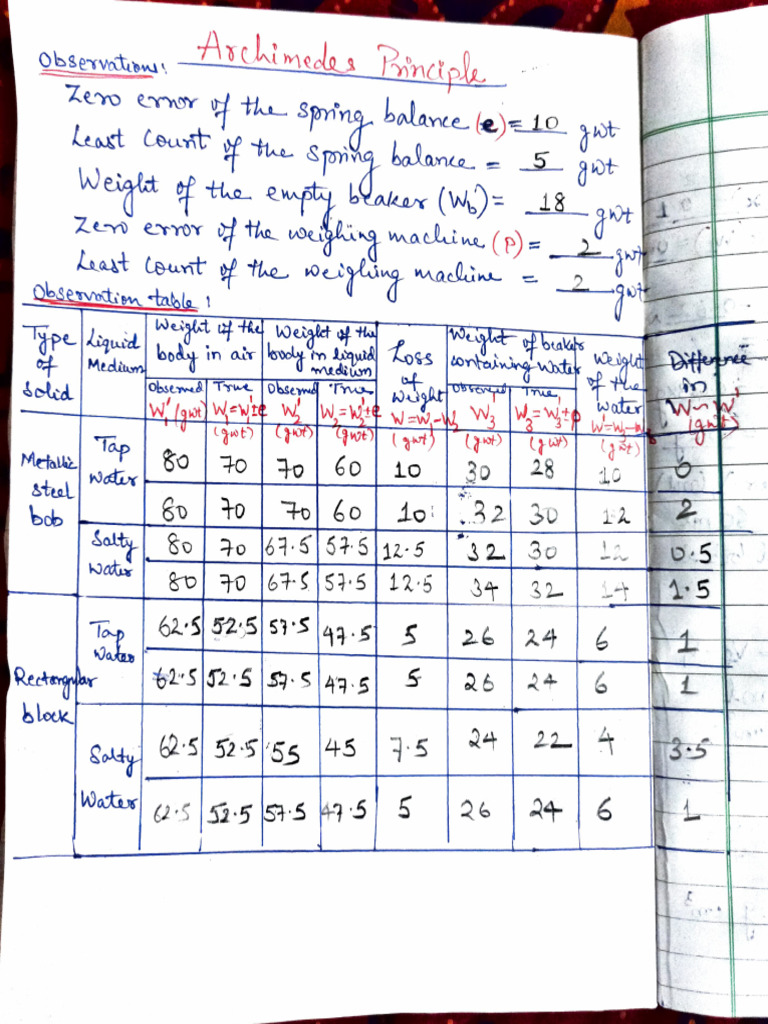 Archimedes Principle
Observations:
Zero error of the spring balance (e) = 10 gwt
Least count of the spring balance = 5 gwt
Weight of the empty beaker (Wb) = 18 gwt
Zero error of the weighing machine (p) = 2 gwt
Least count of the weighing machine = 2 gwt
Observation table:
Type of Solid | Liquid Medium | Weight of the body in air | Weight of the body in liquid medium | Loss of Weight | Weight of beaker containing Water | Weight of the water | Difference in
Observed | True | Observed | True | Observed | True
W₁' (gwt) | W₁=W₁'±e (gwt) | W₂' (gwt) | W₂=W₂'±e (gwt) | W=W₁-W₂ (gwt) | W₃' | W₃=W₃'±p (gwt) | (gwt) | W~W' (gwt)
Metallic steel bob | Tap Water | 80 | 70 | 70 | 60 | 10 | 30 | 28 | 10 | 0
80 | 70 | 70 | 60 | 10 | 32 | 30 | 12 | 2
Salty Water | 80 | 70 | 67.5 | 57.5 | 12.5 | 32 | 30 | 12 | 0.5
80 | 70 | 67.5 | 57.5 | 12.5 | 34 | 32 | 14 | 1.5
Rectangular block | Tap Water | 62.5 | 52.5 | 57.5 | 47.5 | 5 | 26 | 24 | 6 | 1
62.5 | 52.5 | 57.5 | 47.5 | 5 | 26 | 24 | 6 | 1
Salty Water | 62.5 | 52.5 | 55 | 45 | 7.5 | 24 | 22 | 4 | 3.5
62.5 | 52.5 | 57.5 | 47.5 | 5 | 26 | 24 | 6 | 1